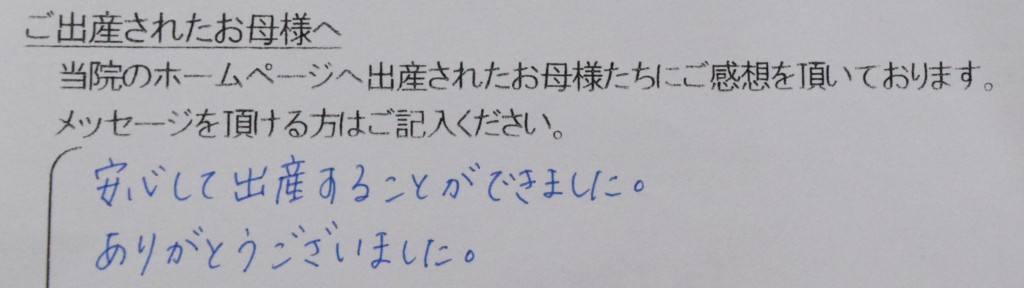 ご出産されたお母様へ
当院のホームページへ出産されたお母様たちにご感想を頂いております。
メッセージを頂ける方はご記入ください。
安心して出産することができました。
ありがとうございました。